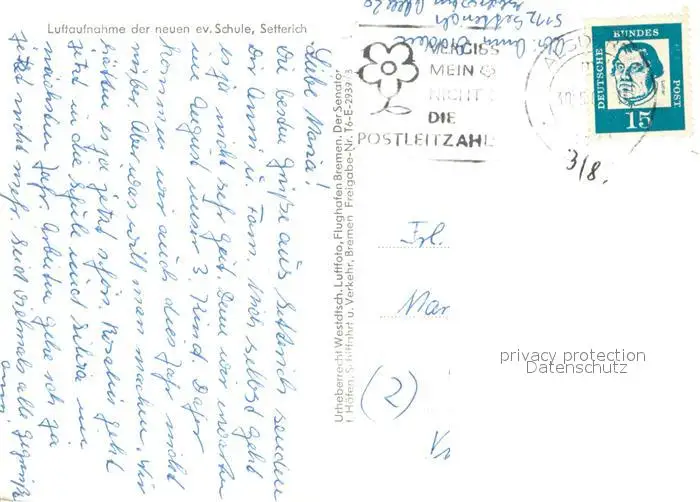 Luftaufnahme der neuen ev. Schule, Setterich
Liebe Maria!
Die besten Grüße aus Setterich senden
Dir Anni u. Fam. Mir selbst geht
es ja nicht sehr gut. Denn wir erwarten
im August unser 3. Kind. Daher
kommen wir auch dies Jahr nicht
rüber. Aber was will man machen. Wir
hätten es ja jetzt schön. Roswita geht
jetzt in die Schule und Silvia im
nächsten Jahr. Arbeiten gehe ich ja
jetzt nicht mehr. Seid vielmals alle gegrüßt
Anni.
Urheberrecht Westdtsch. Luftfoto, Flughafen Bremen, Der Senator
f. Häfen, Schiffahrt u. Verkehr, Bremen Freigabe-Nr. T6-E-2939/3
Abs. Anni
5112 Setterich
VERGISS
MEIN
NICHT
DIE
POSTLEITZAHL
DEUTSCHE
BUNDES
POST
15
3/8.
Frl.
Mar
(2)
privacy protection
Datenschutz